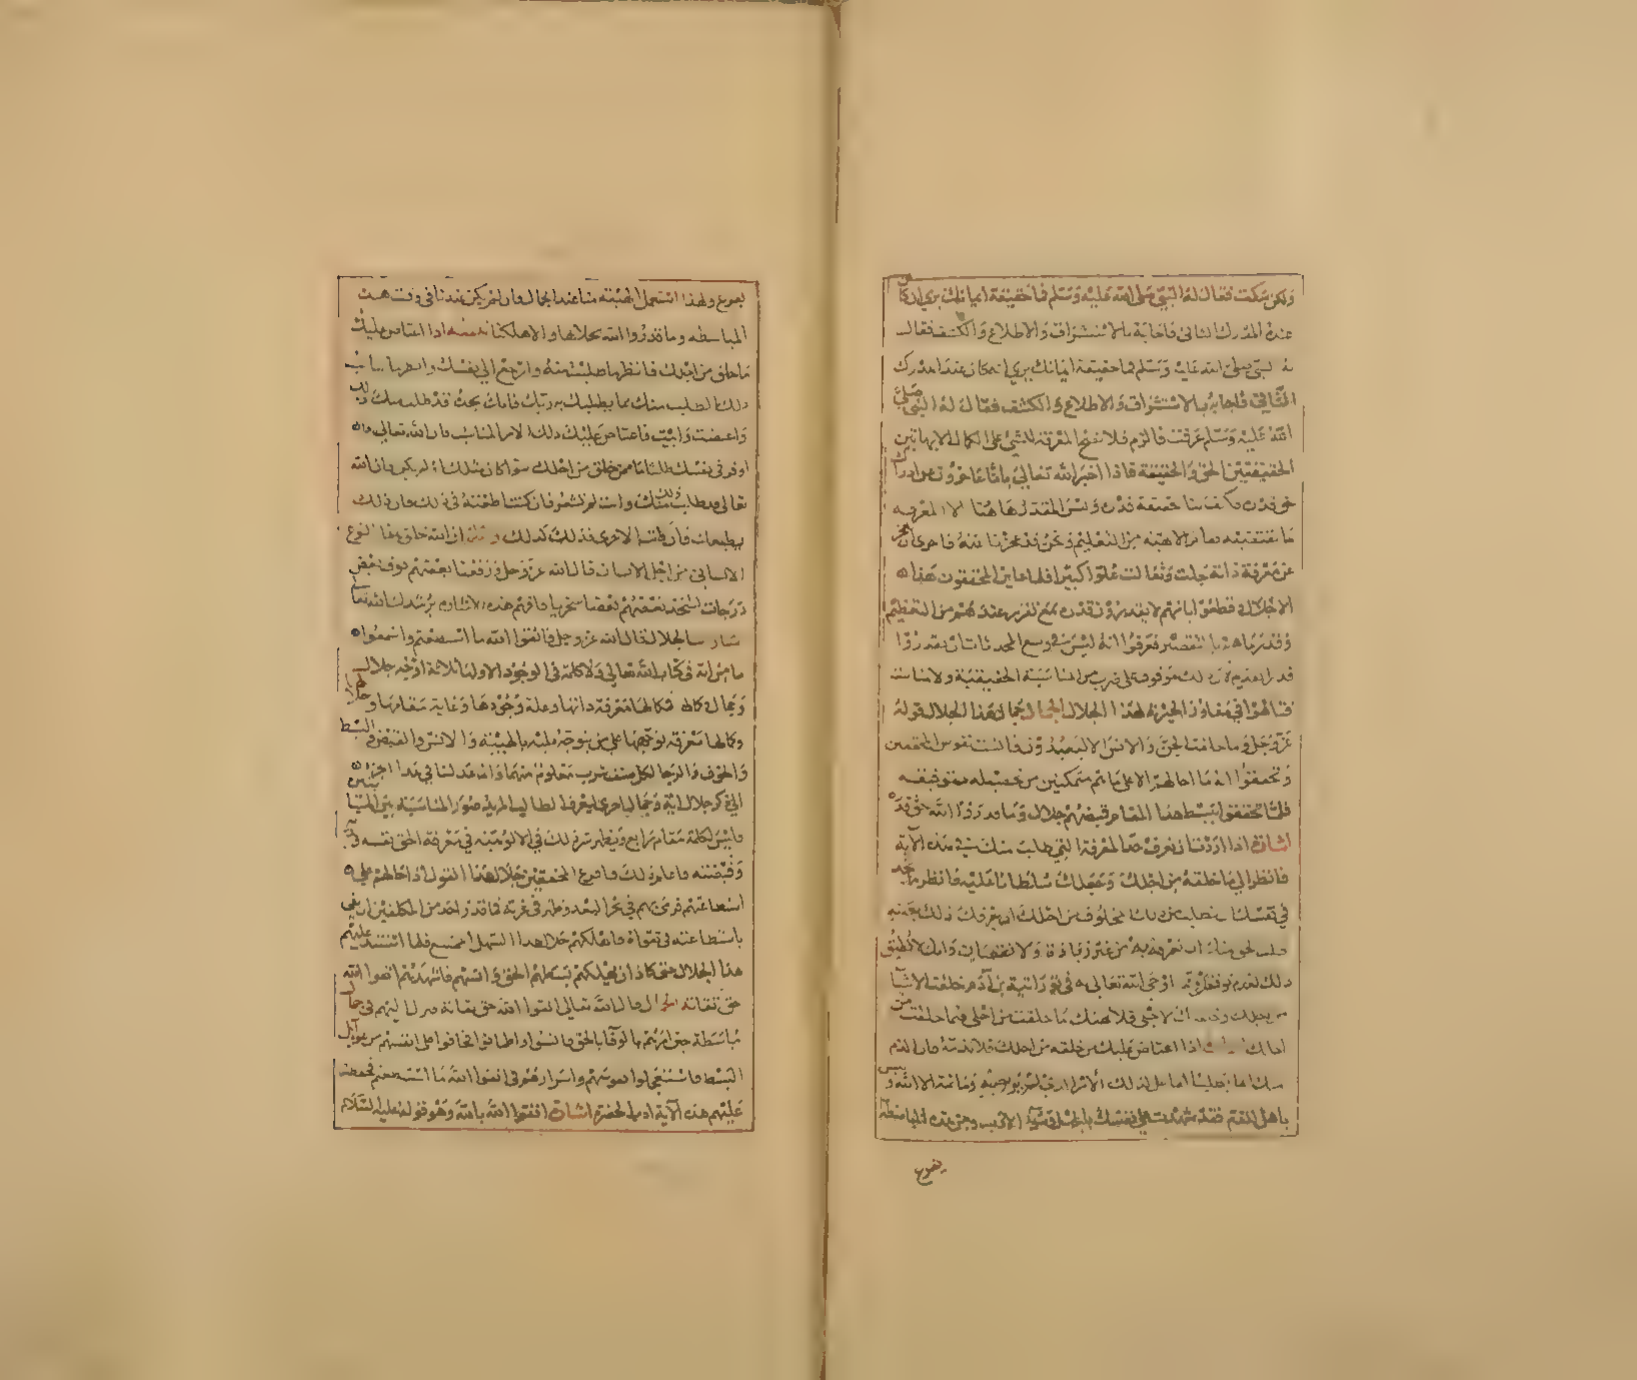 ولكن سكت فقال له النبي صلى الله عليه وسلم فما حقيقة ايمانك يري ان كان
عنده المدرك الثاني فاجابه بالاستشراف والاطلاع والكشف فقال
له النبي صلى الله عليه وسلم فما حقيقة ايمانك يري ان كان عنده المدرك
الثاني فاجابه بالاستشراف والاطلاع والكشف فقال له النبي صلى
الله عليه وسلم عرفت فالزم فلا تصح المعرفة للشئ على الكمال الا بهاتين
الحقيقتين الحق والحقيقة فاذا اخبر الله تعالى باننا عاجزون عن ادراك
حق قدره فكيف بنا حقيقة قدره وليس القدر هاهنا الا المعرفة
بما يقتضيه مقام الالهية من التعظيم ونحن قد عجزنا عنه فاحرى ان نعجز
عن معرفة ذاته جلت وتعالت علوا كبيرا فلما عاين المحققون هذا
الاجلال وقطعوا بانهم لا يقدرون قدره مع تقرير عندهم من التعظيم
فعرفوا انه ليس في وسع المحدثات ان يقدروا
قدر القديم لان ذلك موقوف على ضرب من المناسبة الحقيقية ولا مناسبة
فتاهوا في مفاوز الحيرة لهذا الجلال الجمال جمال هذا الجلال قوله
عز وجل وما خلقت الجن والانس الا ليعبدون فآنست نفوس المحققين
وتحققوا انه ما احالهم الا على ما هم متمكنين من تحصيله بتوفيقه
فلما تحققوا ببسط هذا المقام قبضهم جلال وما قدروا الله حق قدره
اشارة اذا اردت ان تعرف حد المعرفة التي طلب منك في هذه الآية
فانظر الى ما خلقه من اجلك وجعلك سلطانا عليه فانظر ما تجد
في نفسك ان يطلب من ذلك مخلوق من اجلك ان يعرفك ذلك بعينه
طلب الحق منك ان تعرفه به من غير زيادة ولا نقصان وانك لا تطيق
ذلك لعدم توفقك وقد اوحى الله تعالى في توراتيه يا ابن آدم خلقت الاشيا
من اجلك وخلقتك من اجلي فلا تهتك ما خلقت من اجلي فيما خلقت من
اجلك اشارة اذا اعتاض عليك من خلقه من اجلك فلا تذمه فان الذم
باهل للذم فقد شهدت على نفسك بالجهل وحق هذه المباسطة
يفوع
يفوع ولهذا استعمل الهيبة منا عند الجمال وان لم يكن عندنا في وقت هيبة
المباسطة وما قدروا الله بجلالها والا هلكنا تتمة اذا اعتاص عليك
ما خلق من اجلك فانظر ما طلبت منه وارجع الى نفسك وانظر
ذلك الطلب منك بما يطلبك به ربك فانك تجده قد طلب منك ذلك
واعرضت وابيت فاعتاص عليك ذلك الامر المناسب فان الله تعالى
اوقر في نفسك طلبا ما ممن خلق من اجلك سوا كان مثلك او لم يكن فان الله
تعالى قد طلب ذلك منك وانت لم تشعر فان كنت اطعته في ذلك فان ذلك
يطيعك فان كانت الاخرى فذلك كذلك وقد ان الله خلق هذا النوع
الانساني من اجل الانسان قال الله عز وجل ورفعنا بعضهم فوق بعض
درجات ليتخذ بعضهم بعضا سخريا فافهم هذه الاشارة يرشد لنا الله تعالى
بالجلال قال الله عز وجل فاتقوا الله ما استطعتم واسمعوا
ما من آية في كتاب الله تعالى ولا كلمة في الوجود الا ولها ثلاثة اوجه جلال
وجمال وكمال فكمالها معرفة ذاتها وعلة وجودها وغاية مقامها وجلالها
وجمالها معرفة توجهها على من يتوجه عليه بالهيبة والانس والقبض والبسط
والخوف والرجا لكل صنف شرب معلوم منهما وانما عدلنا في هذا الجزء
الى ذكر جلال آية وجمال اخرى ليعرف الطالب المريد صور المناسبة بين الاشيا
وليس لكلمة مقام رابع ويظهر سر ذلك في الالوهية في معرفة الحق نفسه
وقبضته فاعلم ذلك فافزع المحققين جلال هذا القول اذ احالهم على
استطاعتهم فرمى بهم في بحر البعد وطهر في غربة فما قدر احد من المكلفين ان يفي
باستطاعته في تقواه فاهلكهم جلال هذا السهل الممتنع فلما اشتد عليهم
هذا الجلال حتى كاد ان يهلكهم بسطهم الحق وآنسهم فاشهدهم اتقوا الله
حق تقاته الجمال قال الله تعالى اتقوا الله حق تقاته فنزل اليهم في جمال
مباسطة حتى امرهم بالوقا بالحق فآنسوا واطمانوا فخافوا على انفسهم من غوايل
البسط فاستعملوا نفوسهم واسرارهم في اتقوا الله ما استطعتم فحفظت
عليهم هذه الآية ادب الحضرة اشارة اتقوا الله بالله وهو قوله عليه السلام